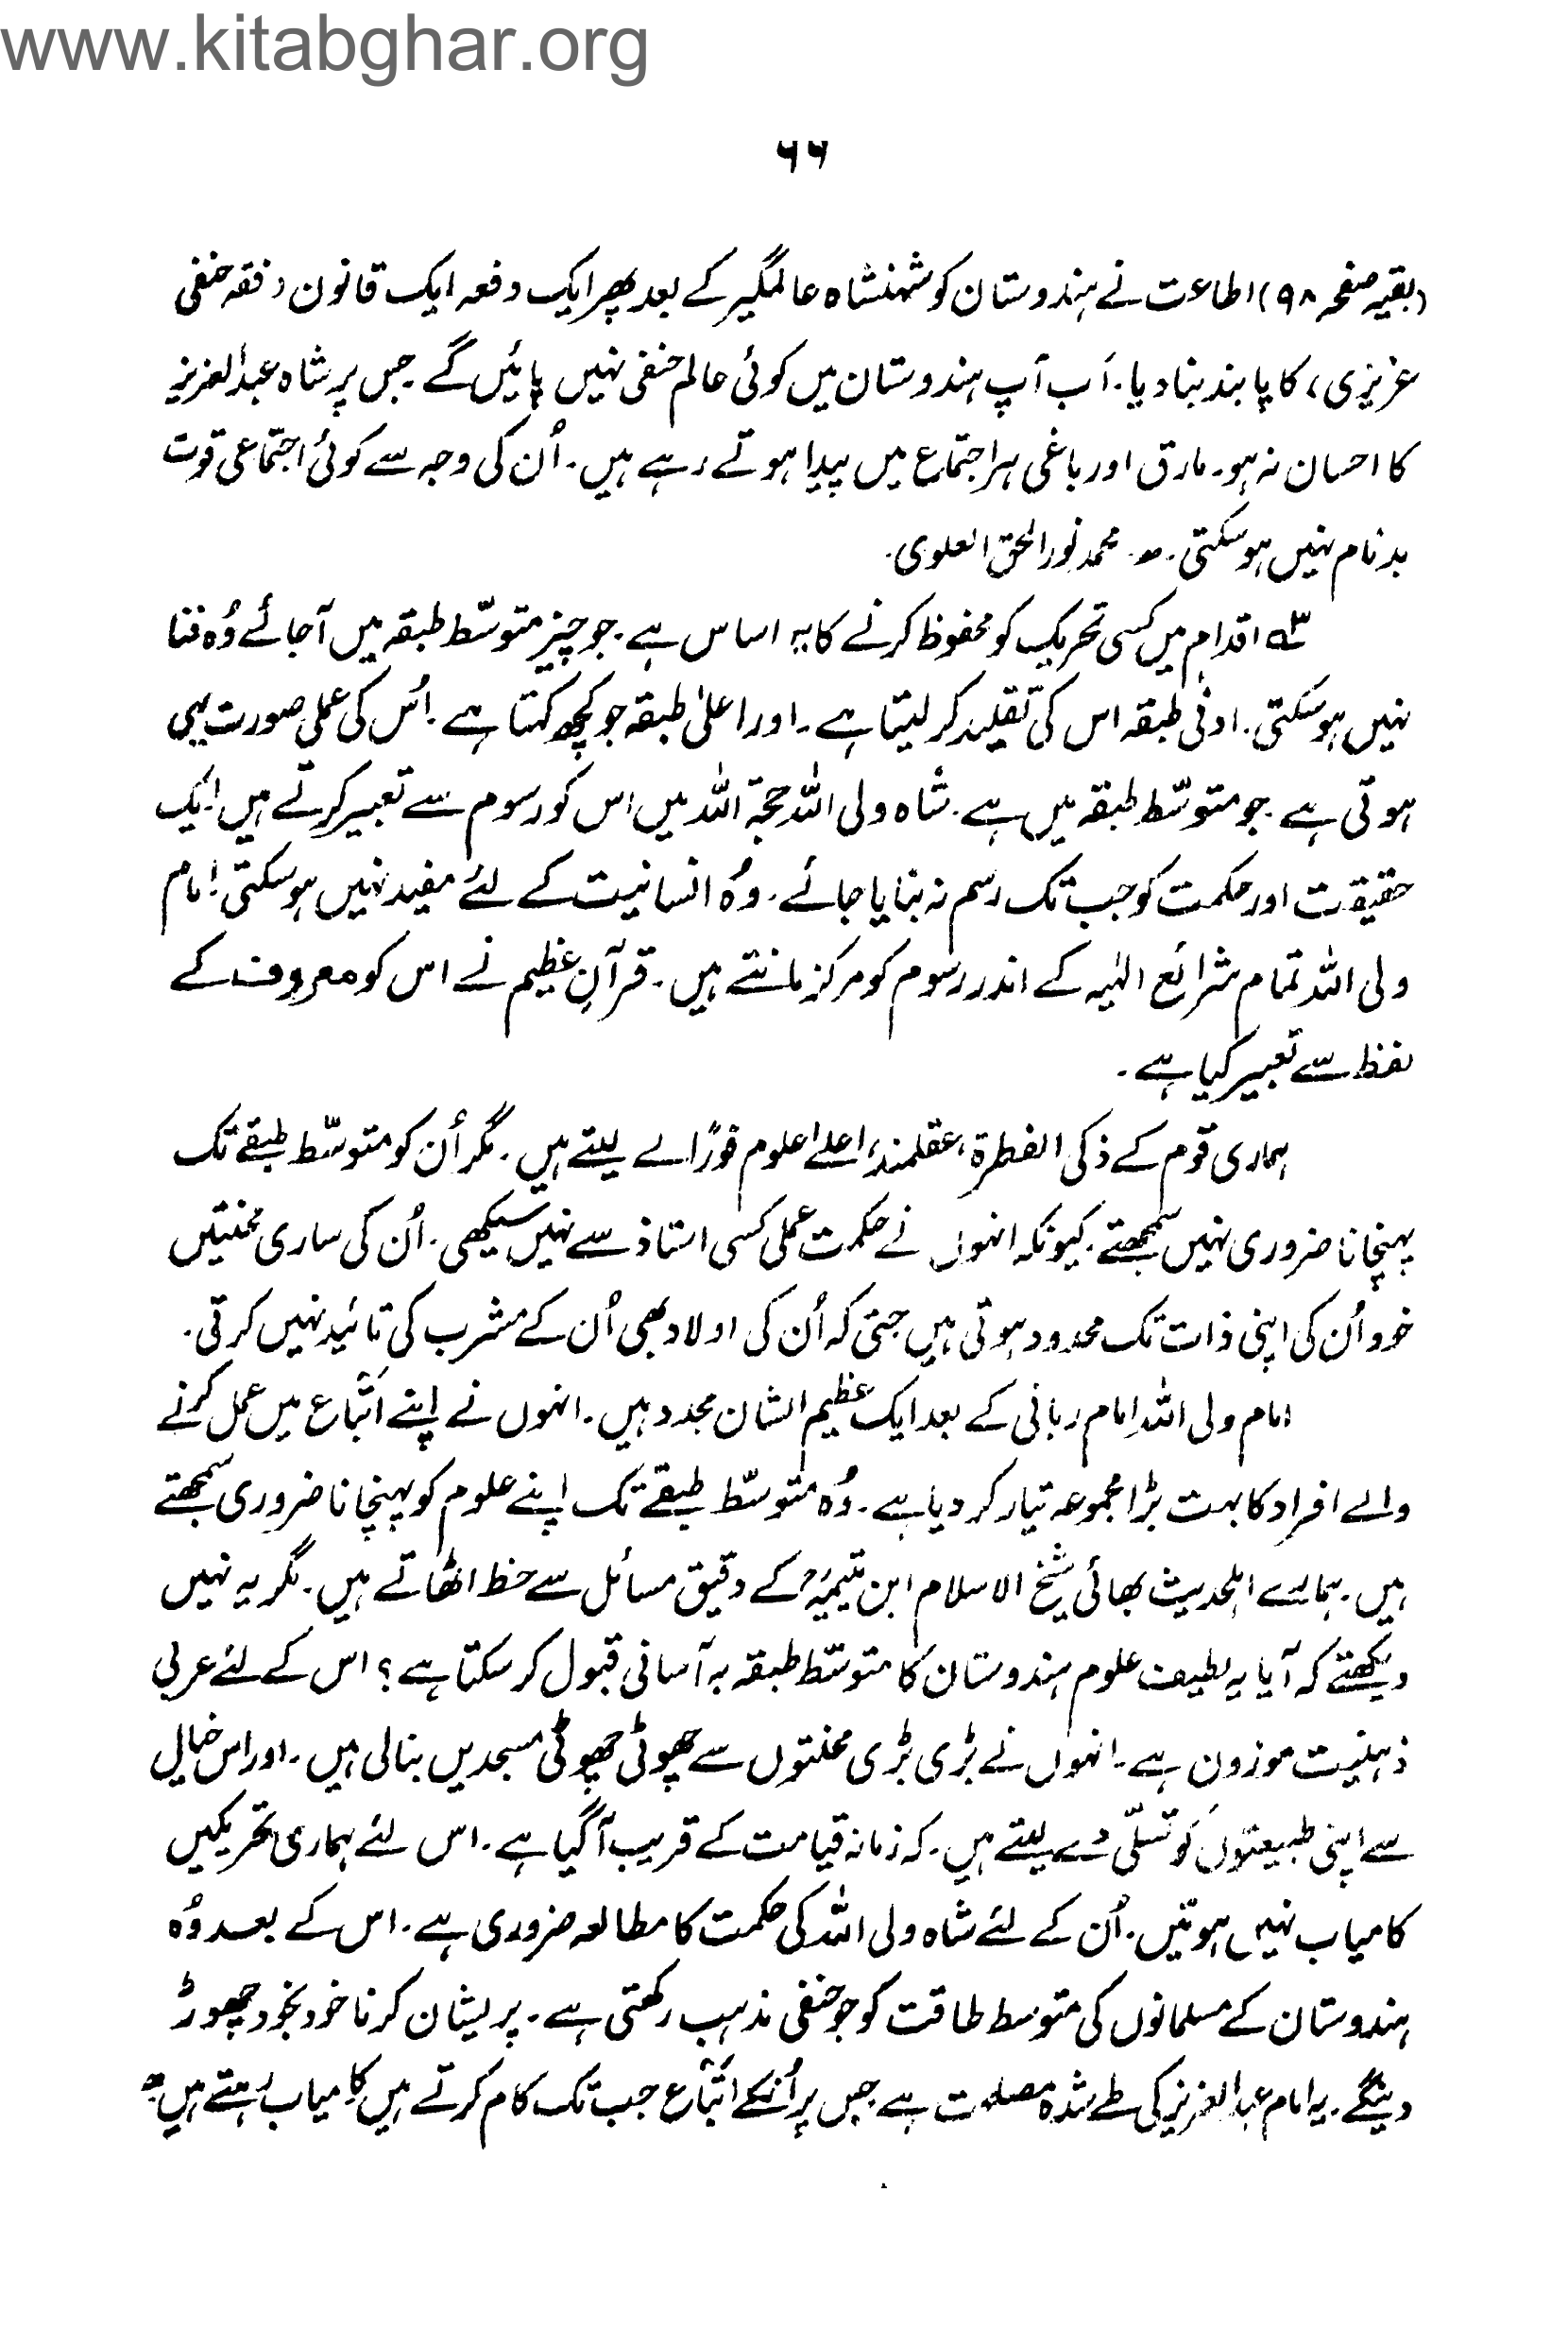 www.kitabghar.org
۶۶
(بقیہ صفحہ ۹۸) اطاعت نے ہندوستان کو شہنشاہ عالمگیر کے بعد پھر ایک دفعہ ایک قانون (فقہ حنفی
عزیزی) کا پابند بنا دیا۔ اَب آپ ہندوستان میں کوئی عالم حنفی نہیں پائیں گے۔ جس پر شاہ عبدالعزیز
کا احسان نہ ہو۔ مارق اور باغی ہر اجتماع میں پیدا ہوتے رہے ہیں۔ اُن کی وجہ سے کوئی اجتماعی قوت
بدنام نہیں ہو سکتی۔ محمد نور الحق العلوی۔
۳؎ اقدام میں کسی تحریک کو محفوظ کرنے کا یہ اساس ہے۔ جو چیز متوسّط طبقہ میں آجائے وُہ فنا
نہیں ہو سکتی۔ ادنیٰ طبقہ اس کی تقلید کر لیتا ہے۔ اور اعلیٰ طبقہ جو کچھ کہتا ہے۔ اُس کی عملی صورت یہی
ہوتی ہے۔ جو متوسّط طبقہ میں ہے۔ شاہ ولی اللہ حجۃ اللہ میں اس کو رسوم سے تعبیر کرتے ہیں۔ ایک
حقیقت اور حکمت کو جب تک رسم نہ بنایا جائے۔ وُہ انسانیت کے لئے مفید نہیں ہو سکتی۔ امام
ولی اللہ تمام شرائع الٰہیہ کے اندر رسوم کو مرکز مانتے ہیں۔ قرآنِ عظیم نے اس کو معروف کے
لفظ سے تعبیر کیا ہے۔
ہماری قوم کے ذکی الفطرۃ، عقلمند، اعلےٰ علوم فورًا لے لیتے ہیں۔ مگر اُن کو متوسّط طبقے تک
پہنچانا ضروری نہیں سمجھتے۔ کیونکہ انہوں نے حکمت عملی کسی استاذ سے نہیں سیکھی۔ اُن کی ساری محنتیں
خود اُن کی اپنی ذات تک محدود ہوتی ہیں حتیٰ کہ اُن کی اولاد بھی اُن کے مشرب کی تائید نہیں کرتی۔
امام ولی اللہ امام ربانی کے بعد ایک عظیم الشان مجدد ہیں۔ انہوں نے اپنے اَتْبَاع میں عمل کرنے
والے افراد کا بہت بڑا مجموعہ تیار کر دیا ہے۔ وُہ متوسّط طبقے تک اپنے علوم کو پہنچانا ضروری سمجھتے
ہیں۔ ہمارے اہلحدیث بھائی شیخ الاسلام ابن تیمیہؒ کے دقیق مسائل سے حظ اٹھاتے ہیں۔ مگر یہ نہیں
دیکھتے کہ آیا یہ لطیف علوم ہندوستان کا متوسّط طبقہ بہ آسانی قبول کر سکتا ہے؟ اس کے لئے عربی
ذہنیت موزون ہے۔ انہوں نے بڑی بڑی محنتوں سے چھوٹی چھوٹی مسجدیں بنا لی ہیں۔ اور اس خیال
سے اپنی طبیعتوں کو تسلّی دے لیتے ہیں۔ کہ زمانہ قیامت کے قریب آگیا ہے۔ اس لئے ہماری تحریکیں
کامیاب نہیں ہوتیں۔ اُن کے لئے شاہ ولی اللہ کی حکمت کا مطالعہ ضروری ہے۔ اس کے بعد وُہ
ہندوستان کے مسلمانوں کی متوسط طاقت کو جو حنفی مذہب رکھتی ہے۔ پریشان کرنا خود بخود چھوڑ
دینگے۔ یہ امام عبدالعزیز کی طے شدہ مصلحت ہے جس پر اُنکے اَتْبَاع جب تک کام کرتے ہیں کامیاب رہتے ہیں۔